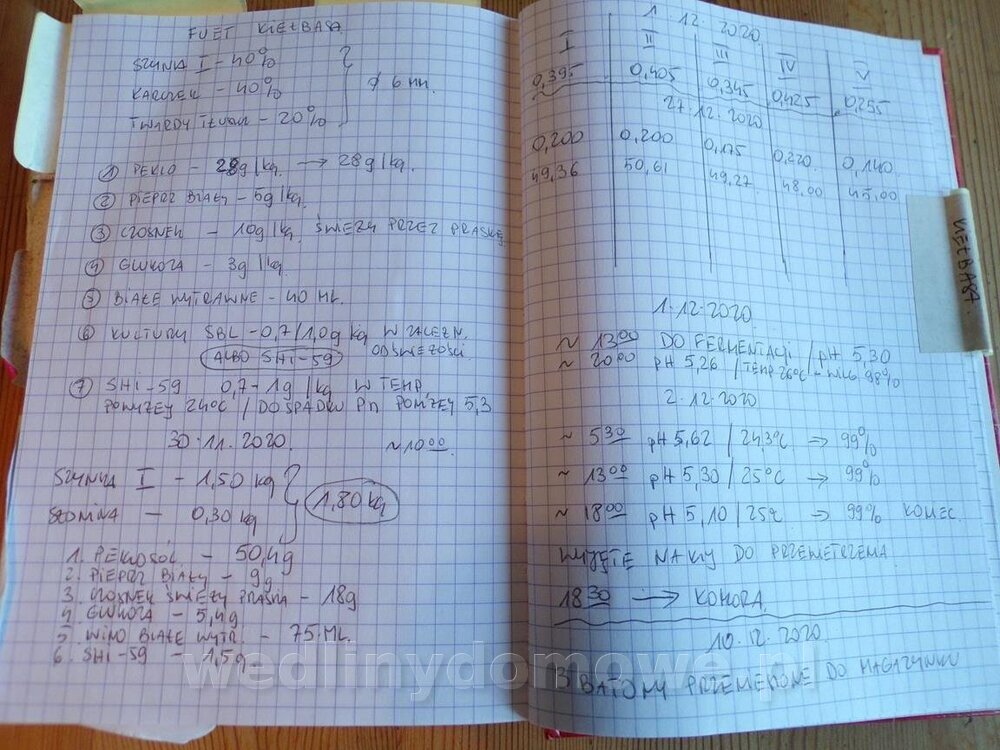 FUET KIEŁBASA
SZYNKA I - 40%
KARCZEK - 40%
TWARDY TŁUSZCZ - 20%
ϕ 6 mm.
① PEKLO - 28g/kg. → 28g/kg.
② PIEPRZ BIAŁY - 5g/kg.
③ CZOSNEK - 10g/kg. ŚWIEŻY PRZEZ PRASKĘ
④ GLUKOZA - 3g/kg.
⑤ BIAŁE WYTRAWNE - 40 ML.
⑥ KULTURY SBL - 0,7/1,0g kg W ZALEŻN.
ALBO SHI-59 OD ŚWIEŻOŚCI
⑦ SHI-59 0,7-1g/kg W TEMP.
POWYŻEJ 24°C / DO SPADKU PH PONIŻEJ 5,3
30.11.2020. ~ 10⁰⁰.
SZYNKA I - 1,50 kg
SŁONINA - 0,30 kg
1,80 kg
1. PEKLOSÓL - 50,4g
2. PIEPRZ BIAŁY - 9g
3. CZOSNEK ŚWIEŻY PRASKA - 18g
4. GLUKOZA - 5,4g
5. WINO BIAŁE WYTR. - 75 ML.
6. SHI-59 - 1,5g.
1.12.2020
I II III IV V
0,395 0,405 0,345 0,425 0,255
27.12.2020
0,200 0,200 0,175 0,220 0,140
49,36 50,61 49,27 48,00 45,00
1.12.2020
~ 13⁰⁰ DO FERMENTACJI / pH 5,30
~ 20⁰⁰ pH 5,26 / TEMP 26°C - WILG 98%
2.12.2020
~ 5³⁰ pH 5,62 / 24,3°C ⇒ 99%
~ 13⁰⁰ pH 5,30 / 25°C ⇒ 99%
~ 18⁰⁰ pH 5,10 / 25°C ⇒ 99% KONIEC.
WYJĘTE NA KIJ DO PRZEWIETRZENIA
18³⁰ → KOMORA.
10.12.2020.
BATONY PRZENIESIONE DO MAGAZYNKU
KIEŁBASA
wedlinydomowe.pl